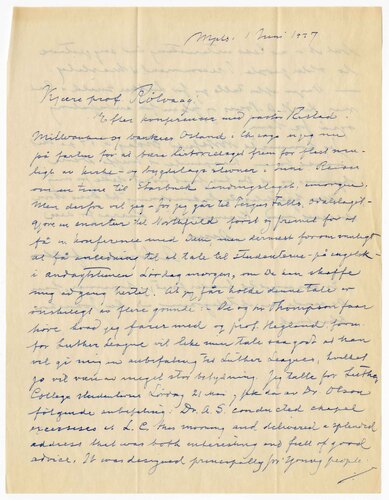 Mpls. 1 Juni 1927
Kjære prof. Rölvaag.
Efter konferanse med pastor
Milwaukee og bankier Osland i Chicago er jeg nu
på farten for at bære historielaget frem for flest
kirke- og bygdelagsstevner i Juni. Reiser
om en time til Starbuck Landingslaget, imorgen.
Men derfra vil jeg - før jeg går til Fergus Falls,
gjøre en snartur til Northfield først og fremst for at
få en konferance med Dem men dernest forom muligt
at få anledning til at tale til studenterne - på engelsk -
i andagtstimen Lördag morgen, om De kan skaffe
mig adgang hertil. At jeg får holde denne tale er
önskeligt av flere grunde - De og pr. Thompson faar
høre hvad jeg farer med og prof. Heglund form.
for Luther League vil like min tale saa godt at han
vil gi mig en anbefaling til Luther Leagues, hvilket
jo vil være av meget stor betydning. Jeg talte for Luther
College studenterne Lördag 21 mai, fik da av Dr. Olson
følgende anbefaling. Dr. A.S. conducted chapel
excersises at L.C. this morning and delivered a splendid
address that was both interesting and full of good
advice. It was designed principally for young people.